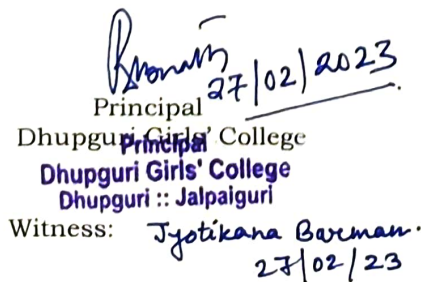 27/02/2023
Principal
Dhupguri Girls' College
Principal
Dhupguri Girls' College
Dhupguri :: Jalpaiguri
Witness: Jyotikana Barman.
27/02/23